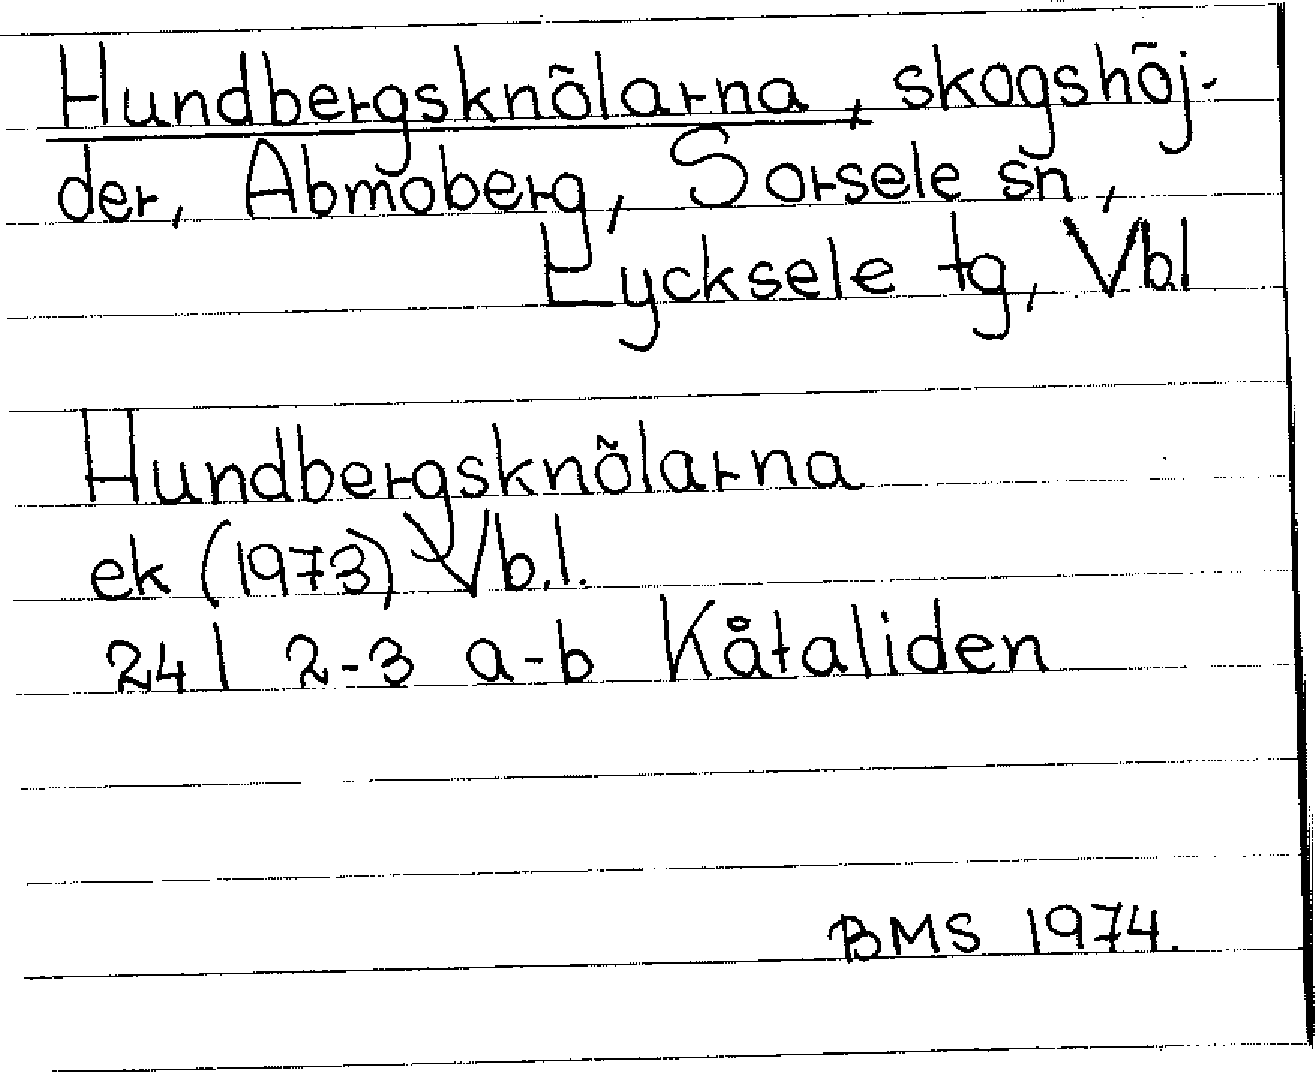 Hundbergsknölarna, skogshöj-
der, Abmoberg, Sorsele sn,
Lycksele tg, Vbl
Hundbergsknölarna
ek (1973) Vb.l.
24 I 2-3 a-b Kåtaliden
BMS 1974.